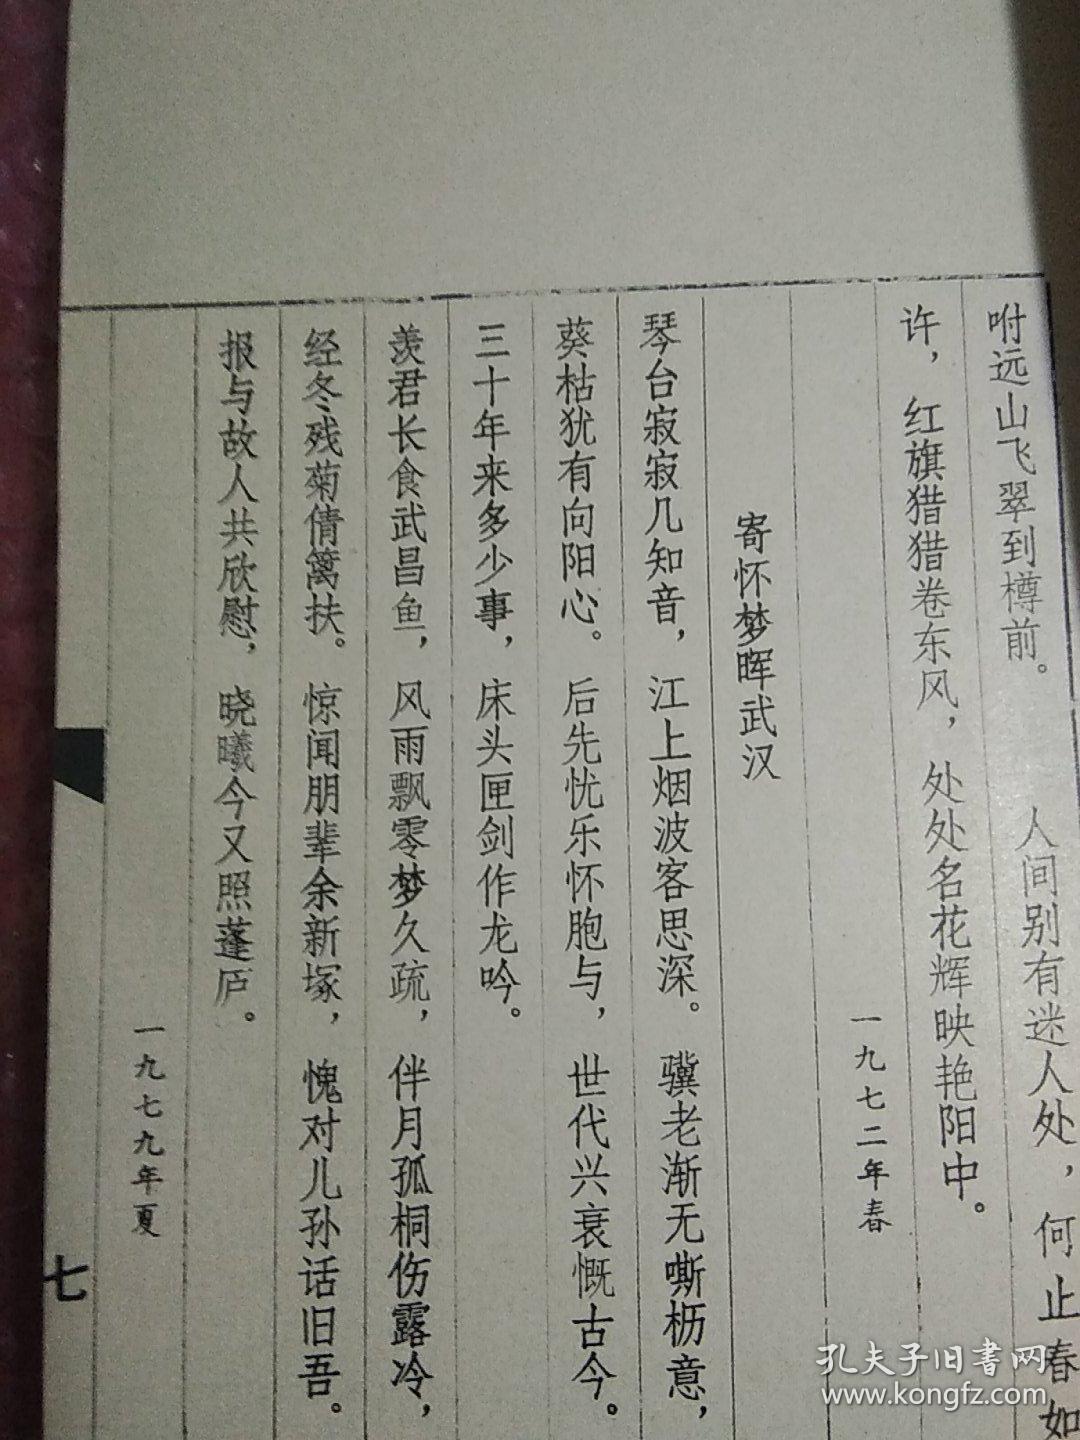 咐远山飞翠到樽前。 人间别有迷人处，何止春如
许，红旗猎猎卷东风，处处名花辉映艳阳中。
一九七二年春
寄怀梦晖武汉
琴台寂寂几知音，江上烟波客思深。骥老渐无嘶枥意，
葵枯犹有向阳心。后先忧乐怀胞与，世代兴衰慨古今。
三十年来多少事，床头匣剑作龙吟。
羡君长食武昌鱼，风雨飘零梦久疏，伴月孤桐伤露冷，
经冬残菊倩篱扶。惊闻朋辈余新塚，愧对儿孙话旧吾。
报与故人共欣慰，晓曦今又照蓬庐。
一九七九年夏
七
孔夫子旧书网
www.kongfz.com